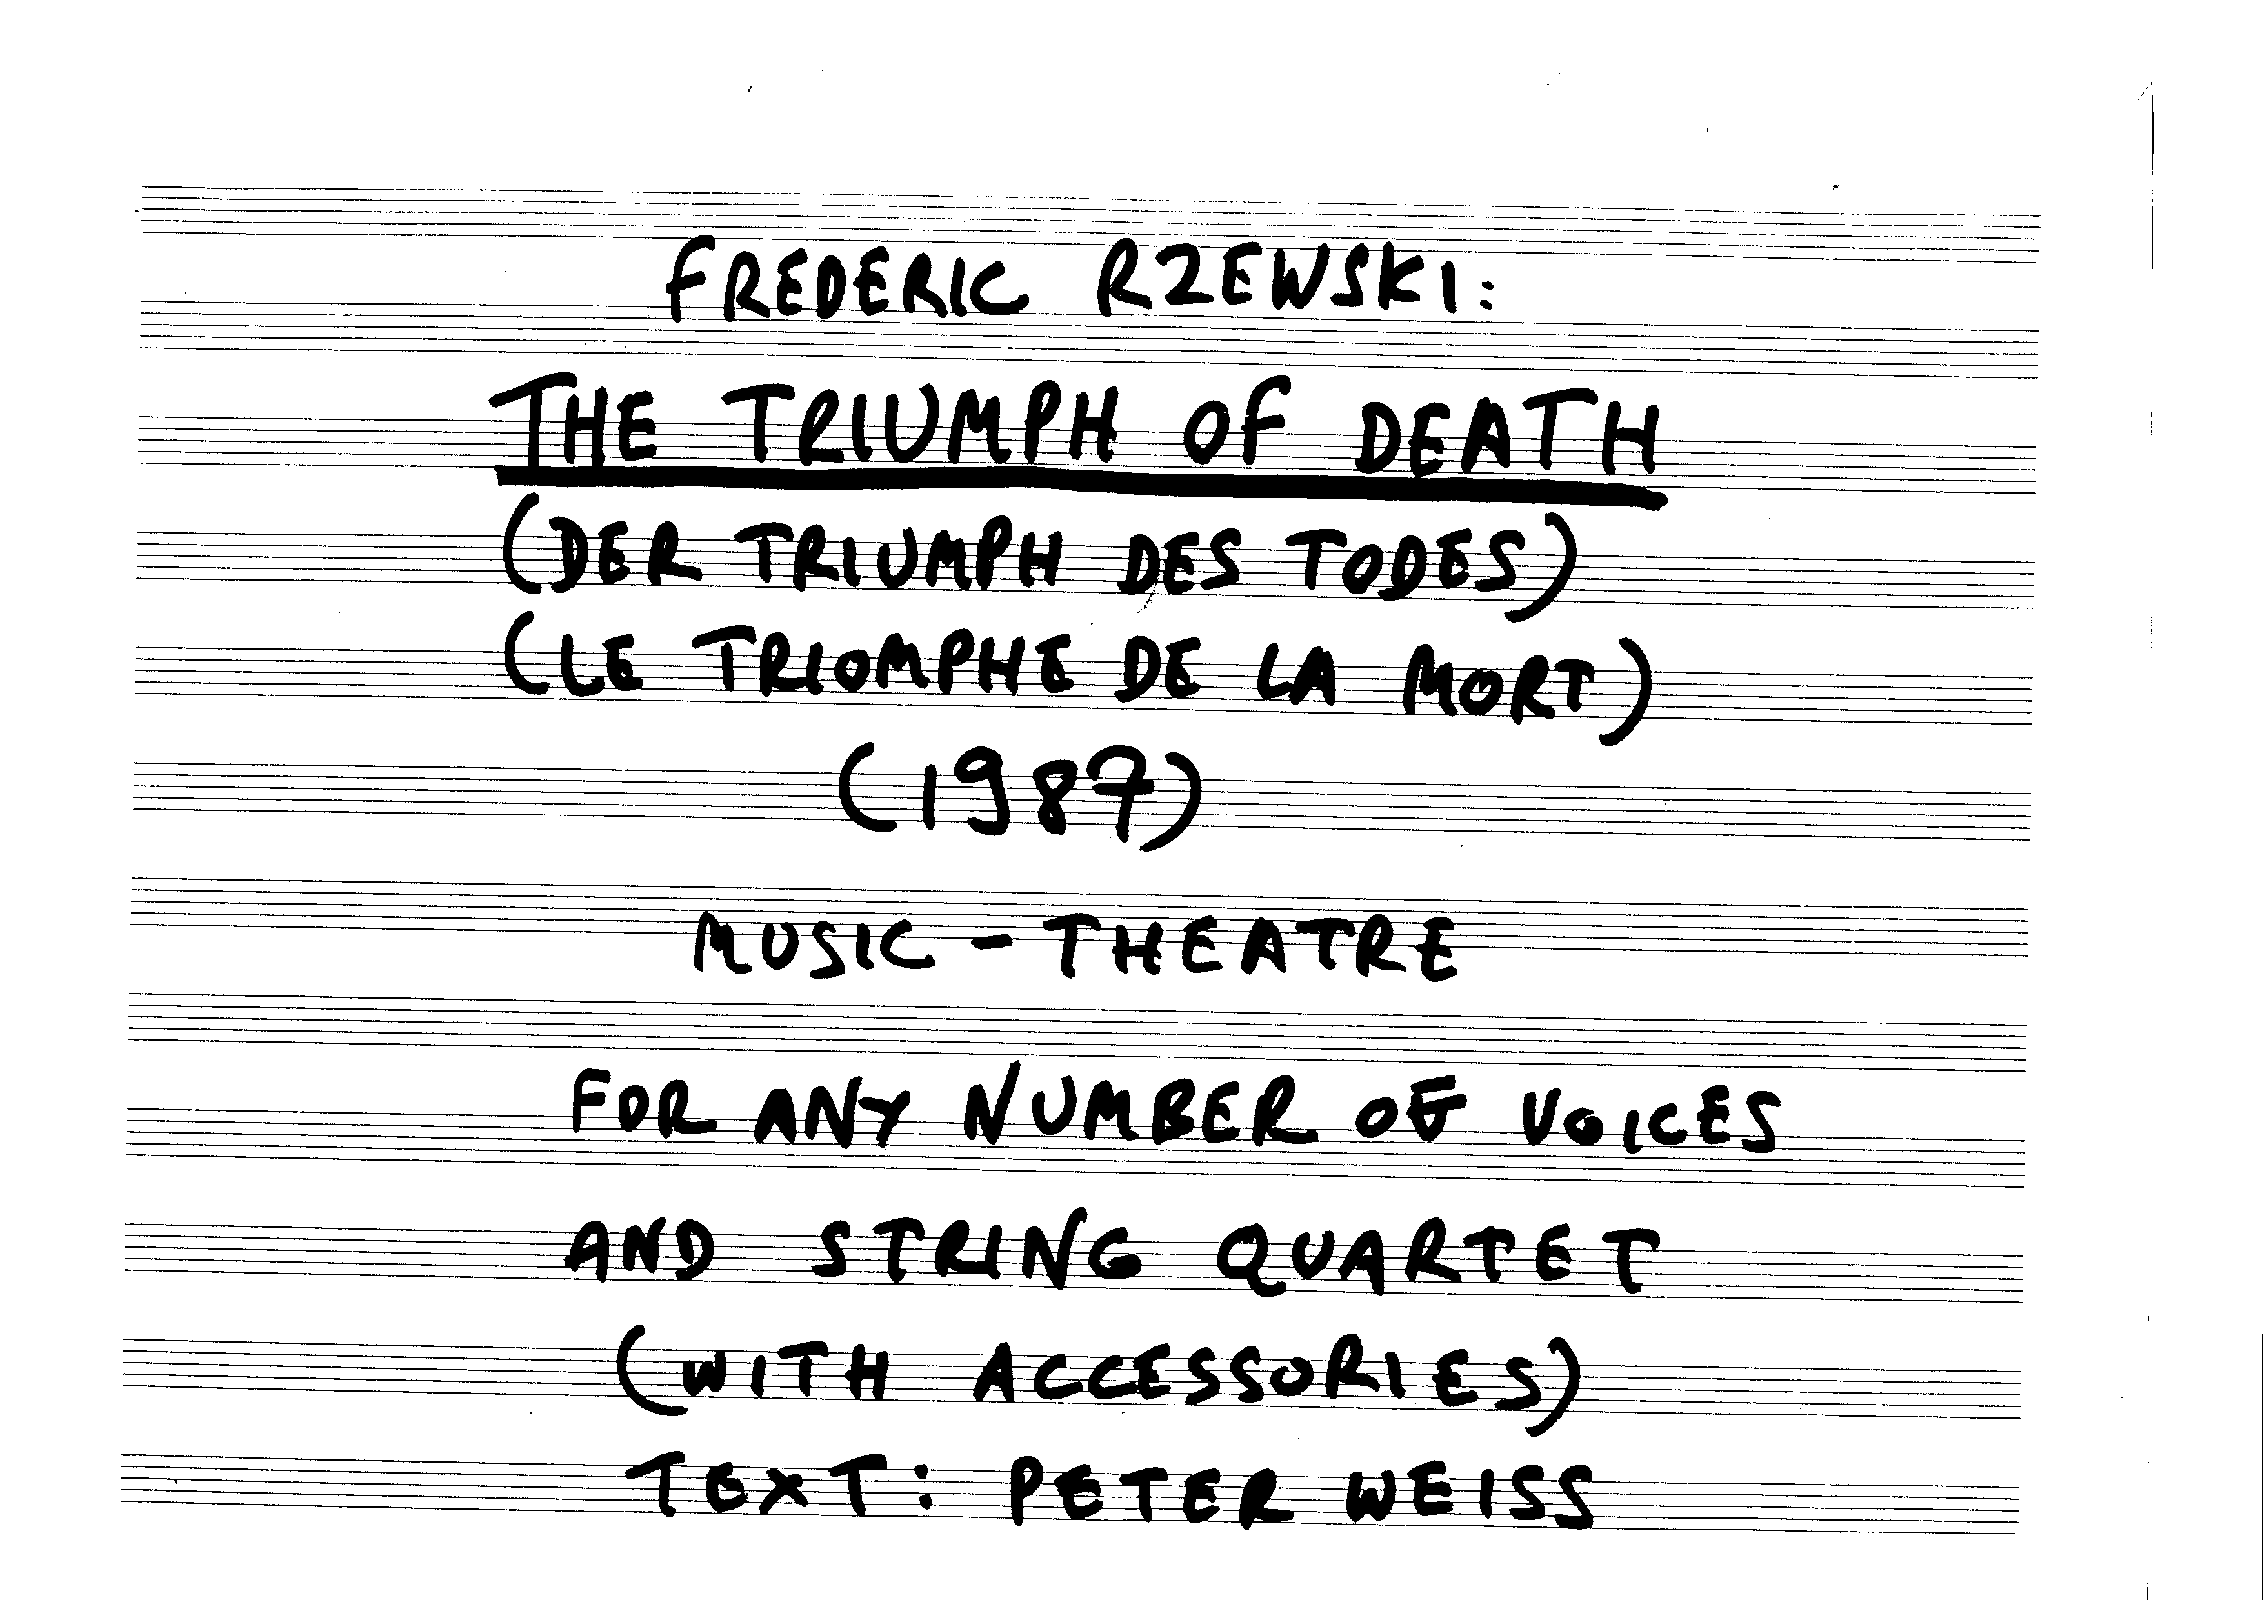 FREDERIC RZEWSKI:
THE TRIUMPH OF DEATH
(DER TRIUMPH DES TODES)
(LE TRIOMPHE DE LA MORT)
(1987)
MUSIC - THEATRE
FOR ANY NUMBER OF VOICES
AND STRING QUARTET
(WITH ACCESSORIES)
TEXT: PETER WEISS